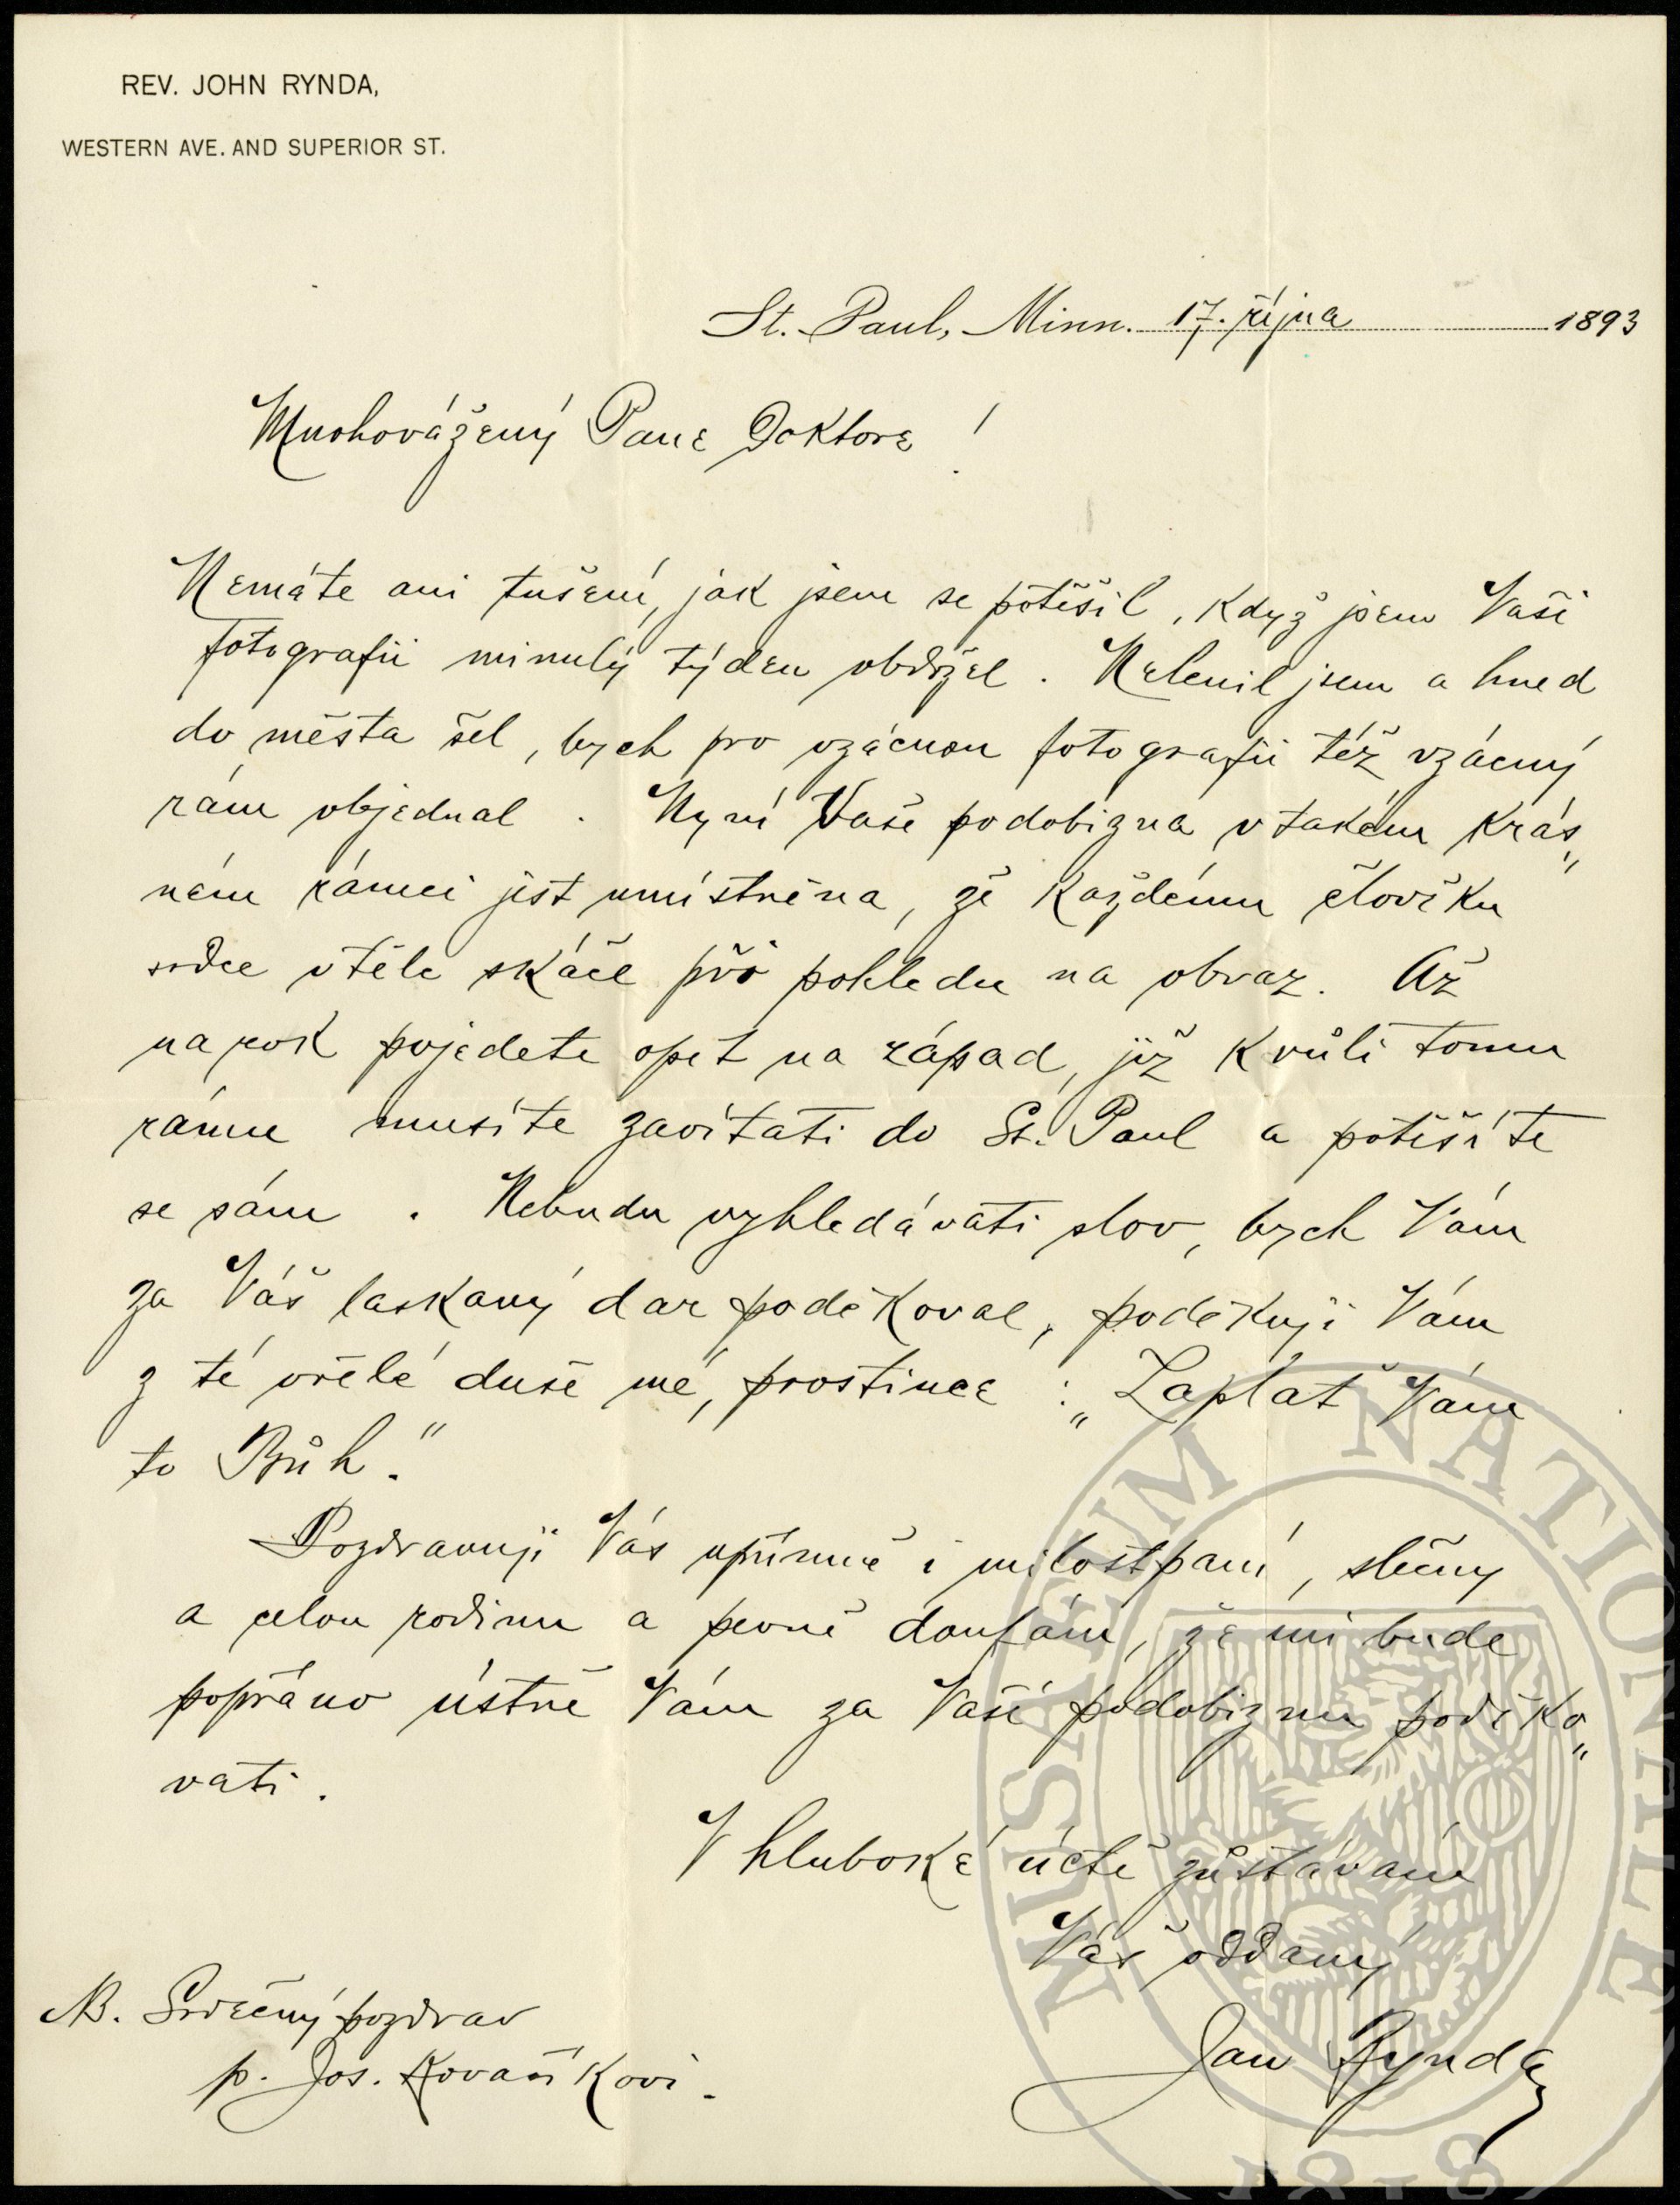 REV. JOHN RYNDA,
WESTERN AVE. AND SUPERIOR ST.
St. Paul, Minn. 17. října 1893
Mnohovážený Pane Doktore!
Nemáte ani tušení, jak jsem se potěšil, když jsem Vaši
fotografii minulý týden obdržel. Nelenil jsem a hned
do města šel, bych pro vzácnou fotografii též vzácný
rám objednal. Nyní Vaše podobizna v takém krás„
ném rámci jest umístněna, že každému člověku
srdce v těle skáče při pohledu na obraz. Až
na rok pojedete opět na západ, již kvůli tomu
rámu musíte zavítati do St. Paul a potěšíte
se sám. Nebudu vyhledávati slov, bych Vám
za Váš laskavý dar poděkoval, poděkuji Vám
z té vřelé duše mé, prostince: „Zaplať Vám
to Bůh."
Pozdravuji Vás upřímně i milostpaní, slečny
a celou rodinu a pevně doufám, že mi bude
popřáno ústně Vám za Vaši podobiznu poděko„
vati.
V hluboké úctě zůstávám
Váš oddaný
Jan Rynda
NB. Srdečný pozdrav
p. Jos. Kovaříkovi.
MUSAEUM NATIONALE
1818